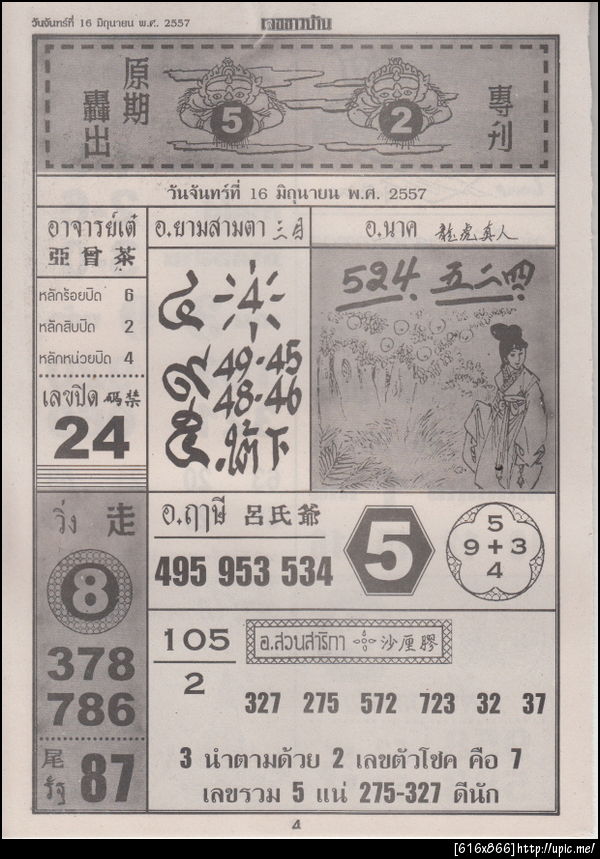 วันจันทร์ที่ 16 มิถุนายน พ.ศ. 2557
เลขชาวบ้าน
原期
轟出
5
2
專刊
วันจันทร์ที่ 16 มิถุนายน พ.ศ. 2557
อาจารย์เต๋
亞曾茶
หลักร้อยปิด 6
หลักสิบปิด 2
หลักหน่วยปิด 4
เลขปิด 碼禁
24
อ.ยามสามตา 三目
4
49-45
48-46
ใต้下
อ.นาค 龍虎真人
524. 五二四.
วิ่ง 走
8
378
786
尾
รัฐ
87
อ.ฤาษี 呂氏爺
495 953 534
5
5
9+3
4
105
2
อ.สวนสาริกา 沙厘膠
327 275 572 723 32 37
3 นำตามด้วย 2 เลขตัวโชค คือ 7
เลขรวม 5 แน่ 275-327 ดีนัก
4
[616x866]http://upic.me/